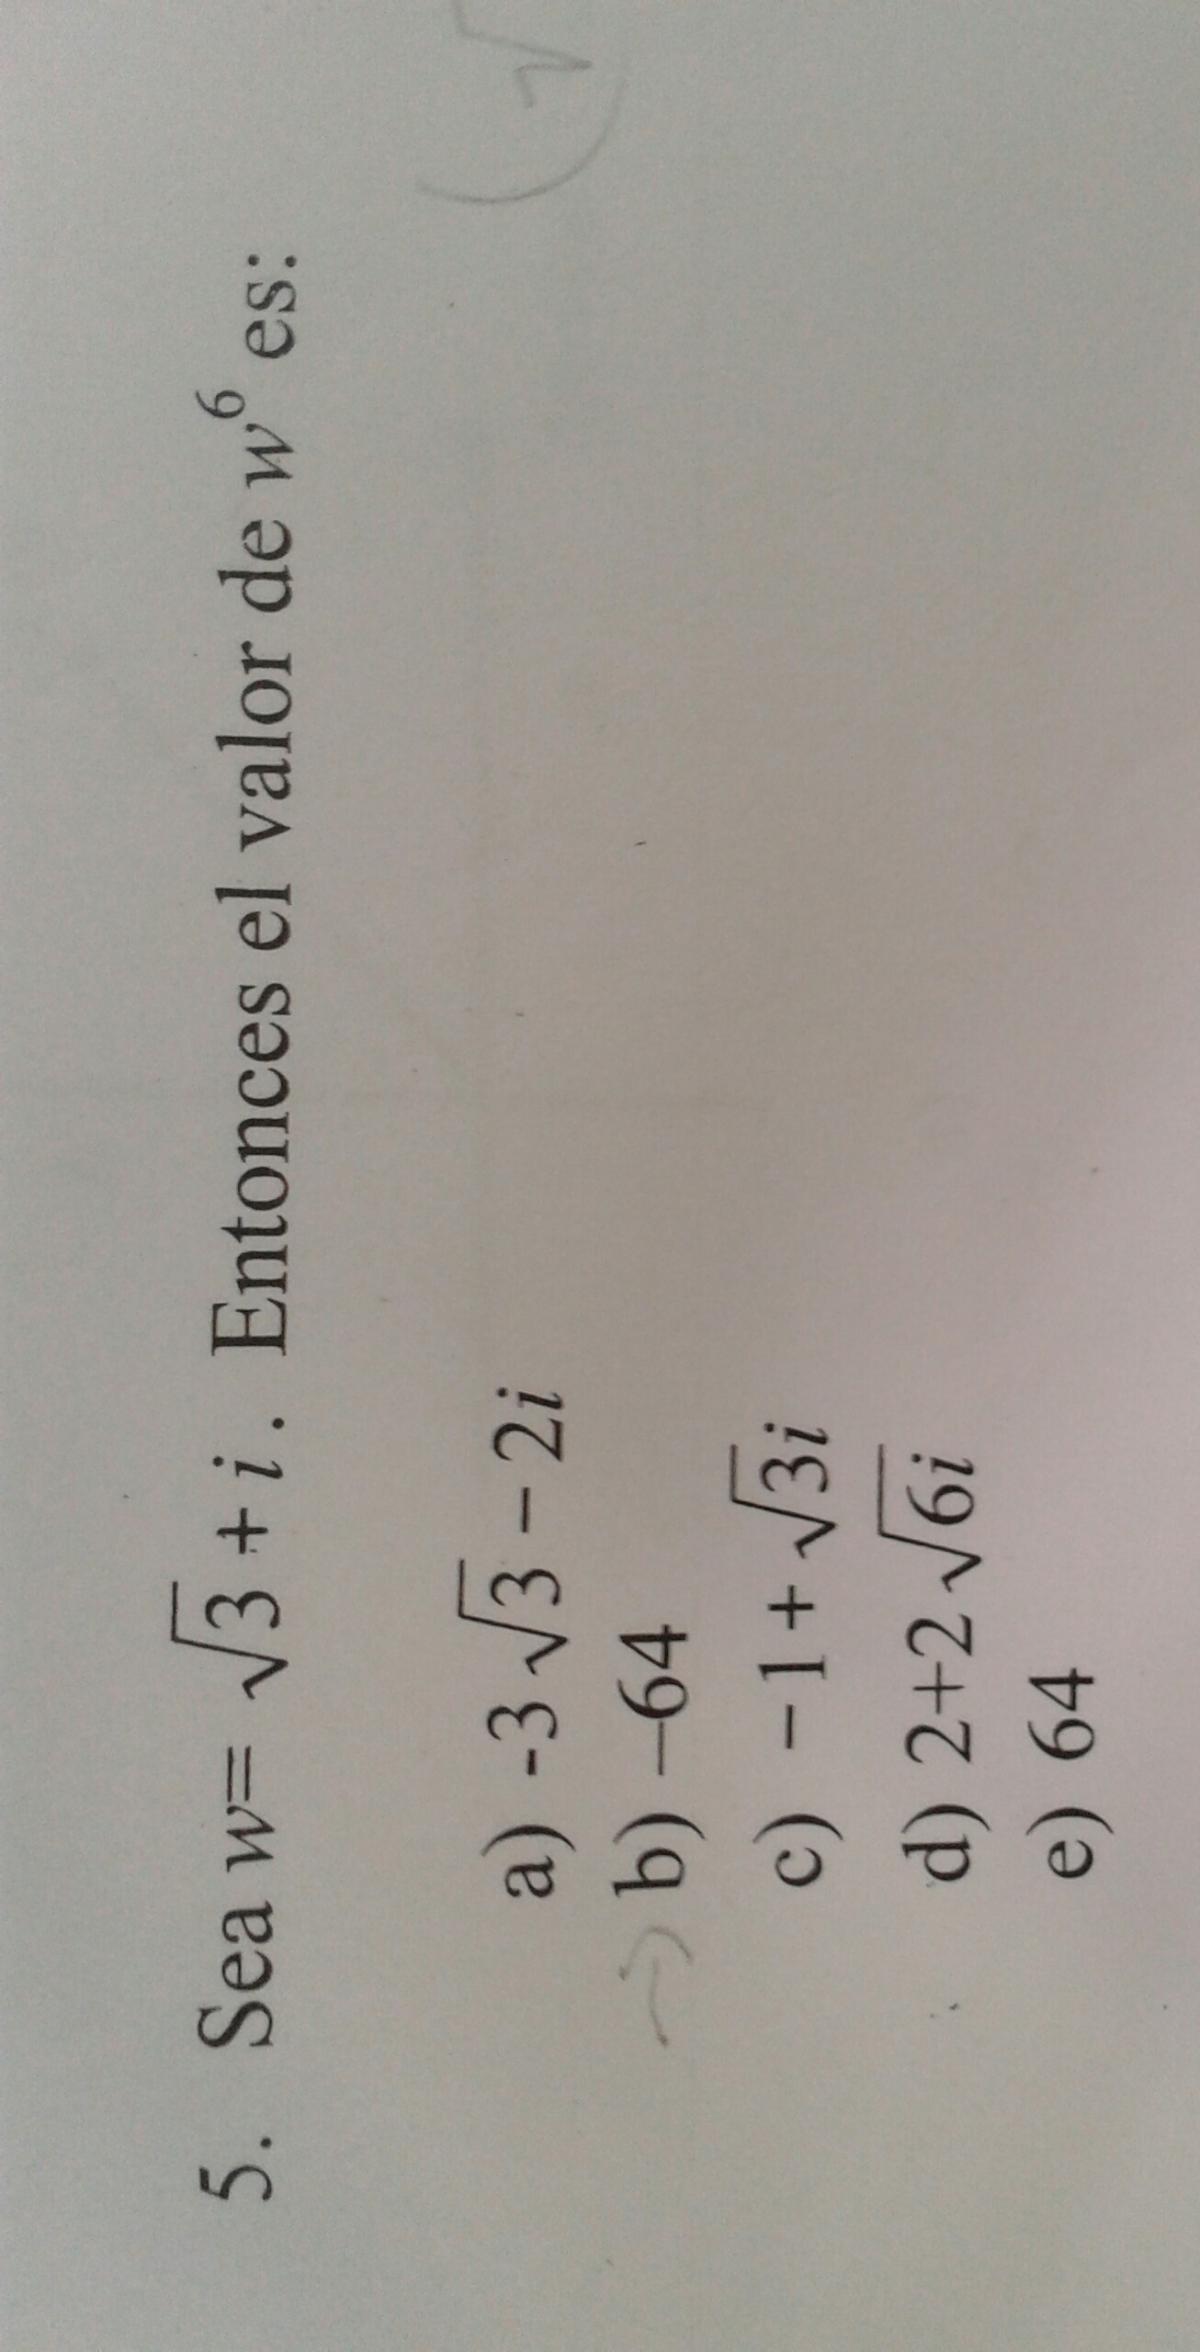 5. Sea w= √3 + i. Entonces el valor de w⁶ es:
a) -3√3 − 2i
→ b) –64
c) −1 + √3i
d) 2+2√6i
e) 64